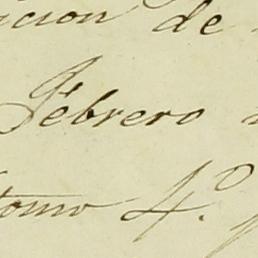 icion de
Febrero
tomo 4.º